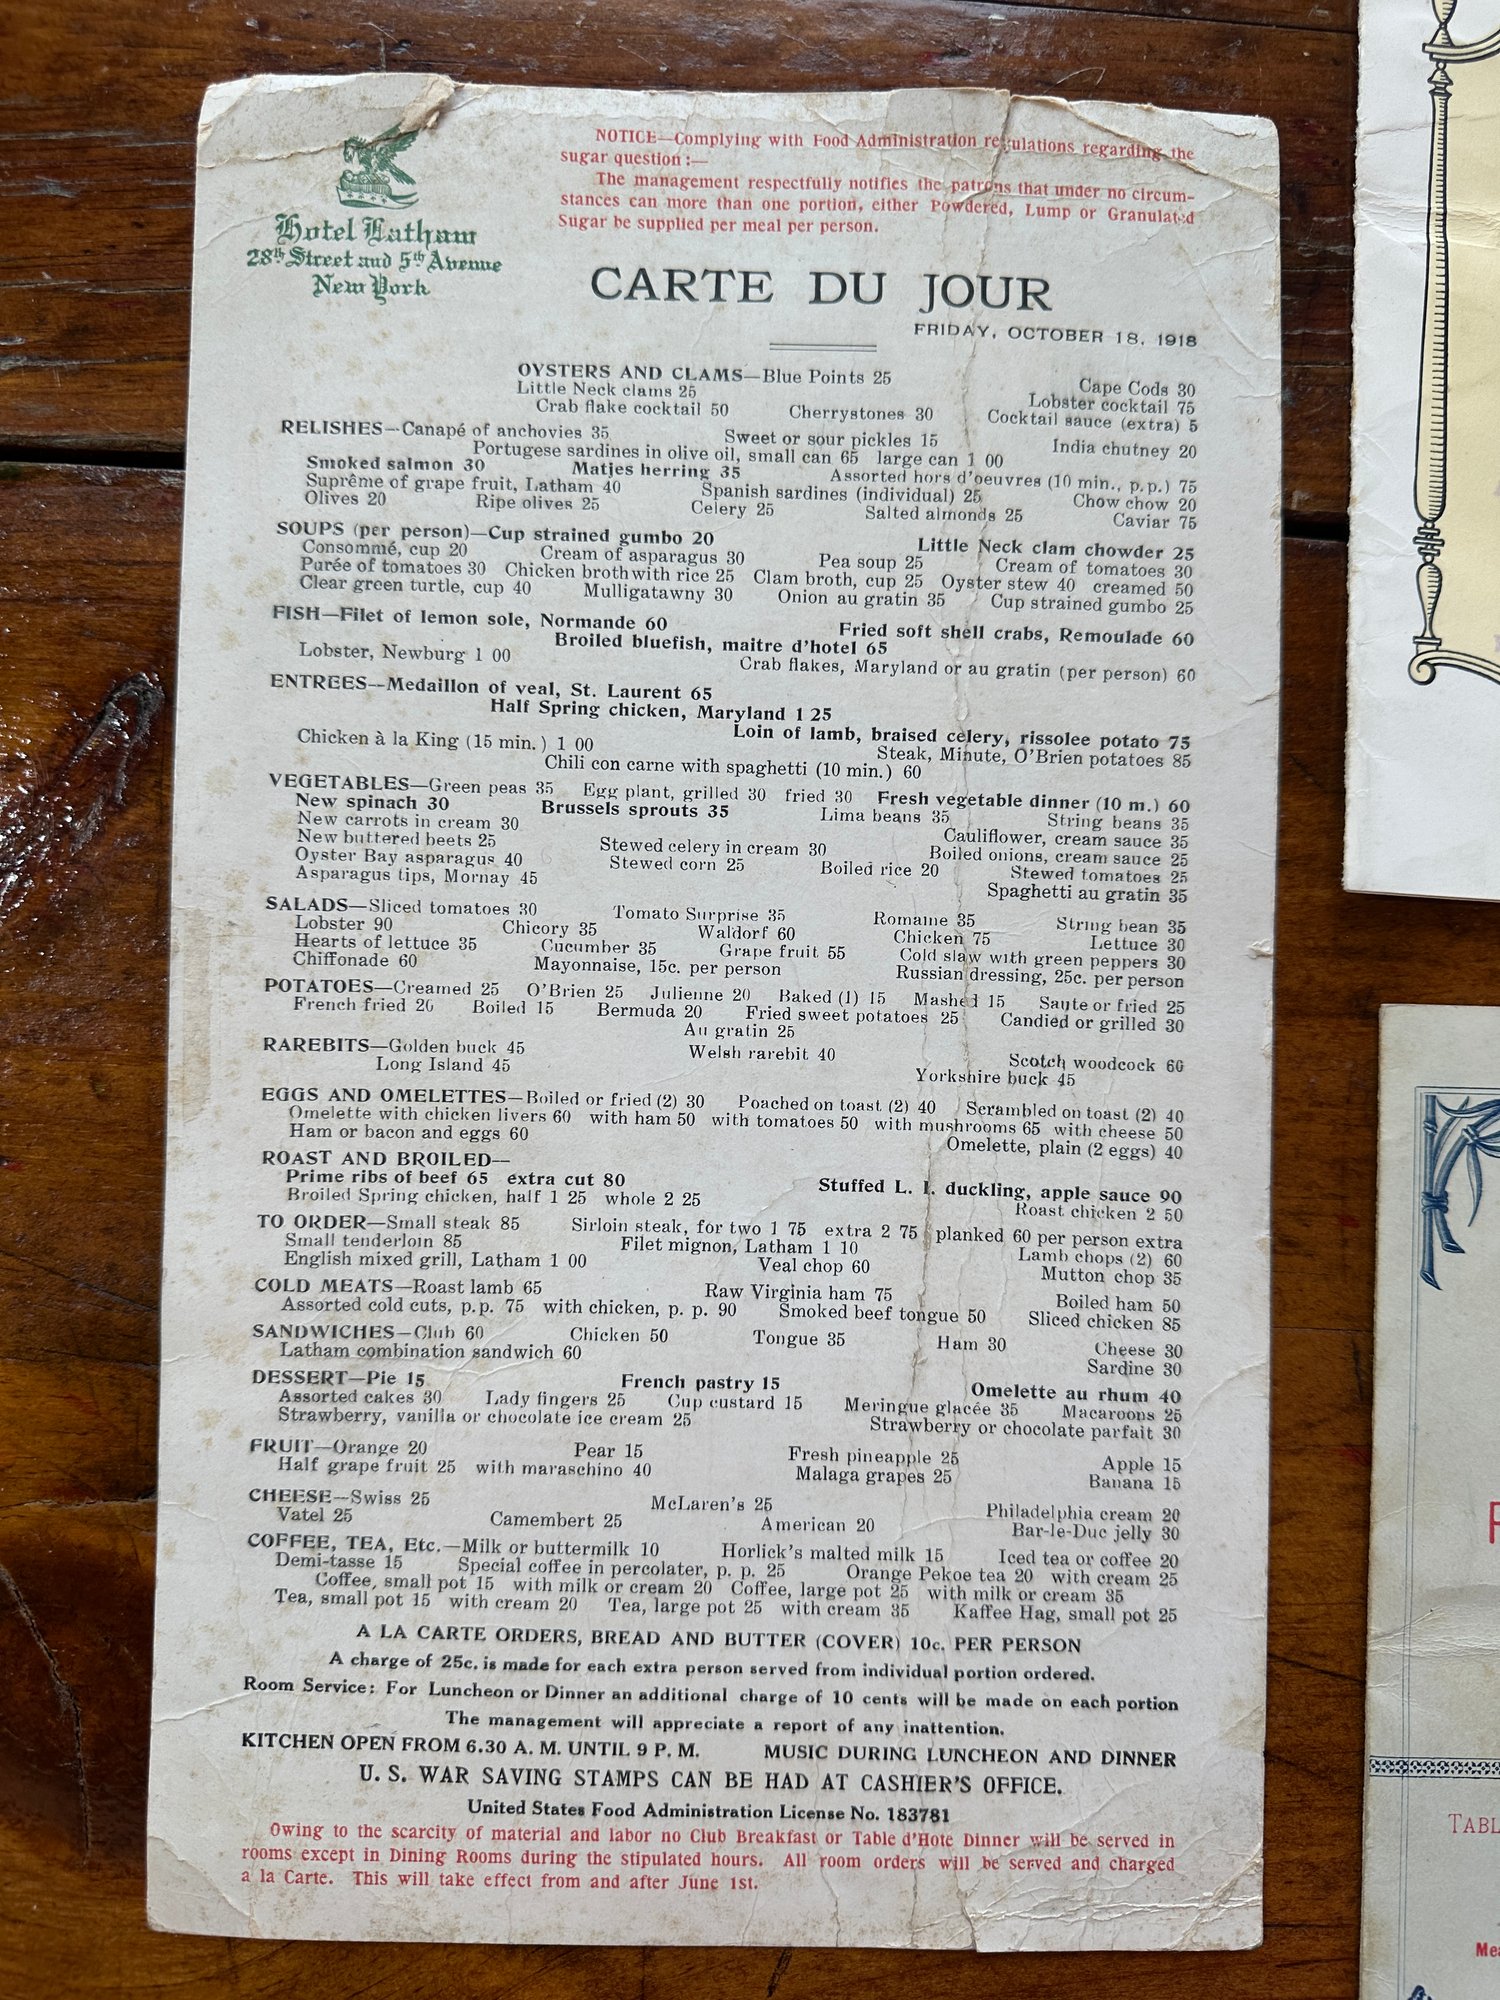 Hotel Latham
28th Street and 5th Avenue
New York
NOTICE—Complying with Food Administration regulations regarding the
sugar question :—
The management respectfully notifies the patrons that under no circum-
stances can more than one portion, either Powdered, Lump or Granulated
Sugar be supplied per meal per person.
CARTE DU JOUR
FRIDAY, OCTOBER 18, 1918
OYSTERS AND CLAMS—Blue Points 25 Cape Cods 30
Little Neck clams 25 Lobster cocktail 75
Crab flake cocktail 50 Cherrystones 30 Cocktail sauce (extra) 5
RELISHES—Canapé of anchovies 35 Sweet or sour pickles 15 India chutney 20
Portugese sardines in olive oil, small can 65 large can 1 00
Smoked salmon 30 Matjes herring 35 Assorted hors d'oeuvres (10 min., p.p.) 75
Suprême of grape fruit, Latham 40 Spanish sardines (individual) 25 Chow chow 20
Olives 20 Ripe olives 25 Celery 25 Salted almonds 25 Caviar 75
SOUPS (per person)—Cup strained gumbo 20 Little Neck clam chowder 25
Consommé, cup 20 Cream of asparagus 30 Pea soup 25 Cream of tomatoes 30
Purée of tomatoes 30 Chicken broth with rice 25 Clam broth, cup 25 Oyster stew 40 creamed 50
Clear green turtle, cup 40 Mulligatawny 30 Onion au gratin 35 Cup strained gumbo 25
FISH—Filet of lemon sole, Normande 60 Fried soft shell crabs, Remoulade 60
Broiled bluefish, maitre d'hotel 65
Lobster, Newburg 1 00 Crab flakes, Maryland or au gratin (per person) 60
ENTREES—Medaillon of veal, St. Laurent 65
Half Spring chicken, Maryland 1 25
Loin of lamb, braised celery, rissolee potato 75
Chicken à la King (15 min.) 1 00 Steak, Minute, O'Brien potatoes 85
Chili con carne with spaghetti (10 min.) 60
VEGETABLES—Green peas 35 Egg plant, grilled 30 fried 30 Fresh vegetable dinner (10 m.) 60
New spinach 30 Brussels sprouts 35 Lima beans 35 String beans 35
New carrots in cream 30 Cauliflower, cream sauce 35
New buttered beets 25 Stewed celery in cream 30 Boiled onions, cream sauce 25
Oyster Bay asparagus 40 Stewed corn 25 Boiled rice 20 Stewed tomatoes 25
Asparagus tips, Mornay 45 Spaghetti au gratin 35
SALADS—Sliced tomatoes 30 Tomato Surprise 35 Romaine 35 String bean 35
Lobster 90 Chicory 35 Waldorf 60 Chicken 75 Lettuce 30
Hearts of lettuce 35 Cucumber 35 Grape fruit 55 Cold slaw with green peppers 30
Chiffonade 60 Mayonnaise, 15c. per person Russian dressing, 25c. per person
POTATOES—Creamed 25 O'Brien 25 Julienne 20 Baked (1) 15 Mashed 15 Saute or fried 25
French fried 20 Boiled 15 Bermuda 20 Fried sweet potatoes 25 Candied or grilled 30
Au gratin 25
RAREBITS—Golden buck 45 Welsh rarebit 40 Scotch woodcock 60
Long Island 45 Yorkshire buck 45
EGGS AND OMELETTES—Boiled or fried (2) 30 Poached on toast (2) 40 Scrambled on toast (2) 40
Omelette with chicken livers 60 with ham 50 with tomatoes 50 with mushrooms 65 with cheese 50
Ham or bacon and eggs 60 Omelette, plain (2 eggs) 40
ROAST AND BROILED—
Prime ribs of beef 65 extra cut 80 Stuffed L. I. duckling, apple sauce 90
Broiled Spring chicken, half 1 25 whole 2 25 Roast chicken 2 50
TO ORDER—Small steak 85 Sirloin steak, for two 1 75 extra 2 75 planked 60 per person extra
Small tenderloin 85 Filet mignon, Latham 1 10 Lamb chops (2) 60
English mixed grill, Latham 1 00 Veal chop 60 Mutton chop 35
COLD MEATS—Roast lamb 65 Raw Virginia ham 75 Boiled ham 50
Assorted cold cuts, p.p. 75 with chicken, p. p. 90 Smoked beef tongue 50 Sliced chicken 85
SANDWICHES—Club 60 Chicken 50 Tongue 35 Ham 30 Cheese 30
Latham combination sandwich 60 Sardine 30
DESSERT—Pie 15 French pastry 15 Omelette au rhum 40
Assorted cakes 30 Lady fingers 25 Cup custard 15 Meringue glacée 35 Macaroons 25
Strawberry, vanilla or chocolate ice cream 25 Strawberry or chocolate parfait 30
FRUIT—Orange 20 Pear 15 Fresh pineapple 25 Apple 15
Half grape fruit 25 with maraschino 40 Malaga grapes 25 Banana 15
CHEESE—Swiss 25 McLaren's 25 Philadelphia cream 20
Vatel 25 Camembert 25 American 20 Bar-le-Duc jelly 30
COFFEE, TEA, Etc.—Milk or buttermilk 10 Horlick's malted milk 15 Iced tea or coffee 20
Demi-tasse 15 Special coffee in percolater, p. p. 25 Orange Pekoe tea 20 with cream 25
Coffee, small pot 15 with milk or cream 20 Coffee, large pot 25 with milk or cream 35
Tea, small pot 15 with cream 20 Tea, large pot 25 with cream 35 Kaffee Hag, small pot 25
A LA CARTE ORDERS, BREAD AND BUTTER (COVER) 10c. PER PERSON
A charge of 25c. is made for each extra person served from individual portion ordered.
Room Service: For Luncheon or Dinner an additional charge of 10 cents will be made on each portion
The management will appreciate a report of any inattention.
KITCHEN OPEN FROM 6.30 A. M. UNTIL 9 P. M. MUSIC DURING LUNCHEON AND DINNER
U. S. WAR SAVING STAMPS CAN BE HAD AT CASHIER'S OFFICE.
United States Food Administration License No. 183781
Owing to the scarcity of material and labor no Club Breakfast or Table d'Hote Dinner will be served in
rooms except in Dining Rooms during the stipulated hours. All room orders will be served and charged
a la Carte. This will take effect from and after June 1st.